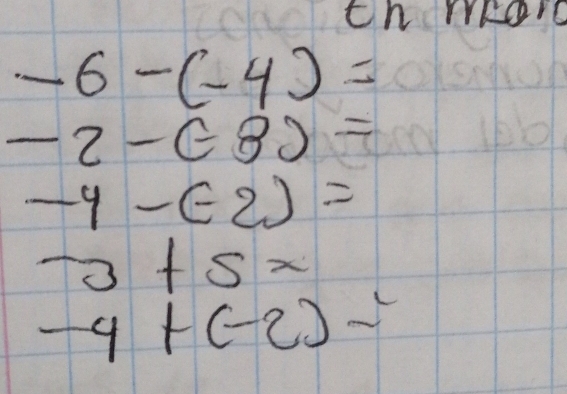 -6 - (-4) =
-2 - (-8) =
-4 - (-2) =
-3 + 5 =
-4 + (-2) =